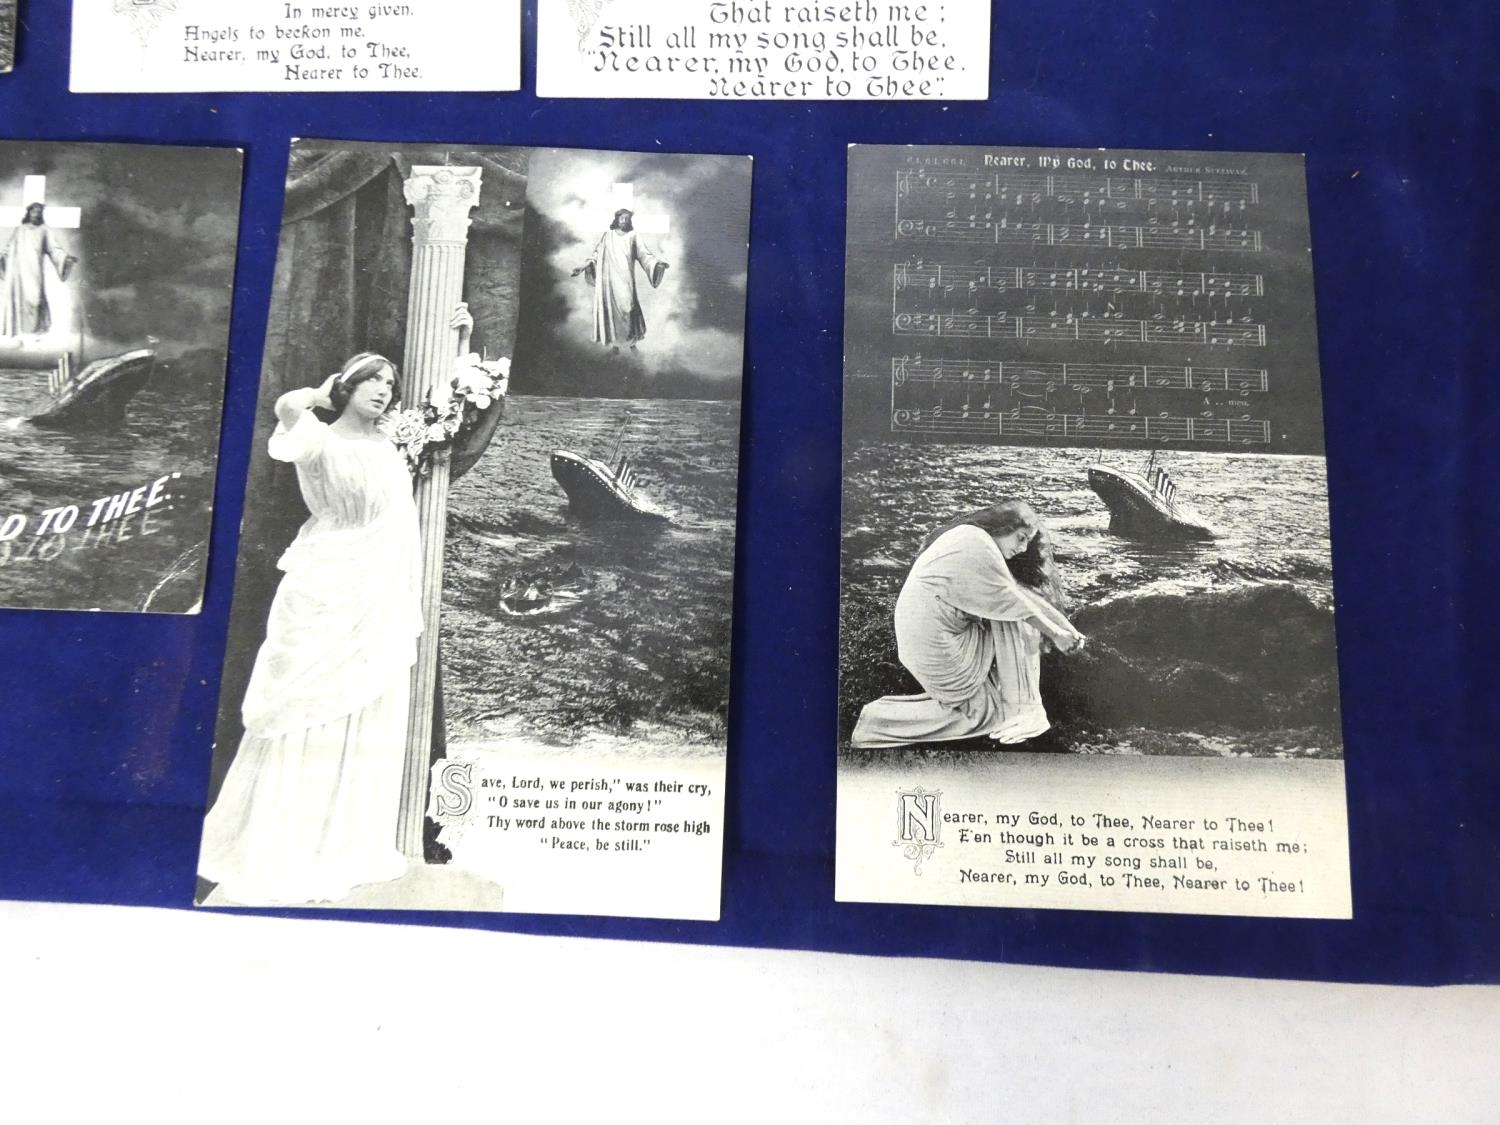 In mercy given.
Angels to beckon me.
Nearer, my God, to Thee,
Nearer to Thee.
That raiseth me ;
Still all my song shall be,
"Nearer, my God, to Thee.
Nearer to Thee".
D TO THEE."
Save, Lord, we perish," was their cry,
"O save us in our agony!"
Thy word above the storm rose high
"Peace, be still."
6.4.6.4.6.6.4.
Nearer, My God, to Thee.
ARTHUR SULLIVAN.
A .. men.
Nearer, my God, to Thee, Nearer to Thee!
E'en though it be a cross that raiseth me;
Still all my song shall be,
Nearer, my God, to Thee, Nearer to Thee!